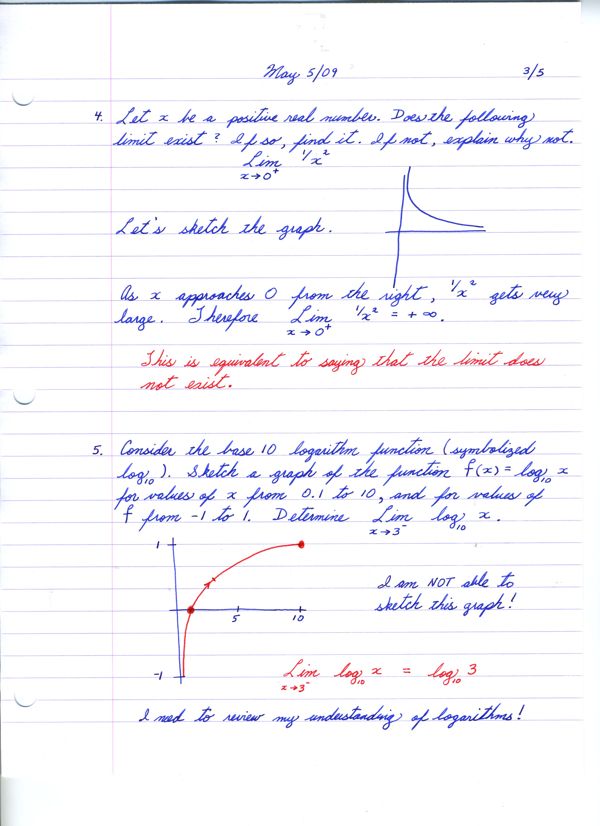 May 5/09 3/5
4. Let x be a positive real number. Does the following
limit exist? If so, find it. If not, explain why not.
Lim 1/x²
x→0⁺
Let's sketch the graph.
As x approaches 0 from the right, 1/x² gets very
large. Therefore Lim 1/x² = +∞.
x→0⁺
This is equivalent to saying that the limit does
not exist.
5. Consider the base 10 logarithm function (symbolized
log₁₀). Sketch a graph of the function f(x) = log₁₀ x
for values of x from 0.1 to 10, and for values of
f from -1 to 1. Determine Lim log₁₀ x.
x→3⁻
1
5 10
-1
I am NOT able to
sketch this graph!
Lim log₁₀ x = log₁₀ 3
x→3⁻
I need to review my understanding of logarithms!